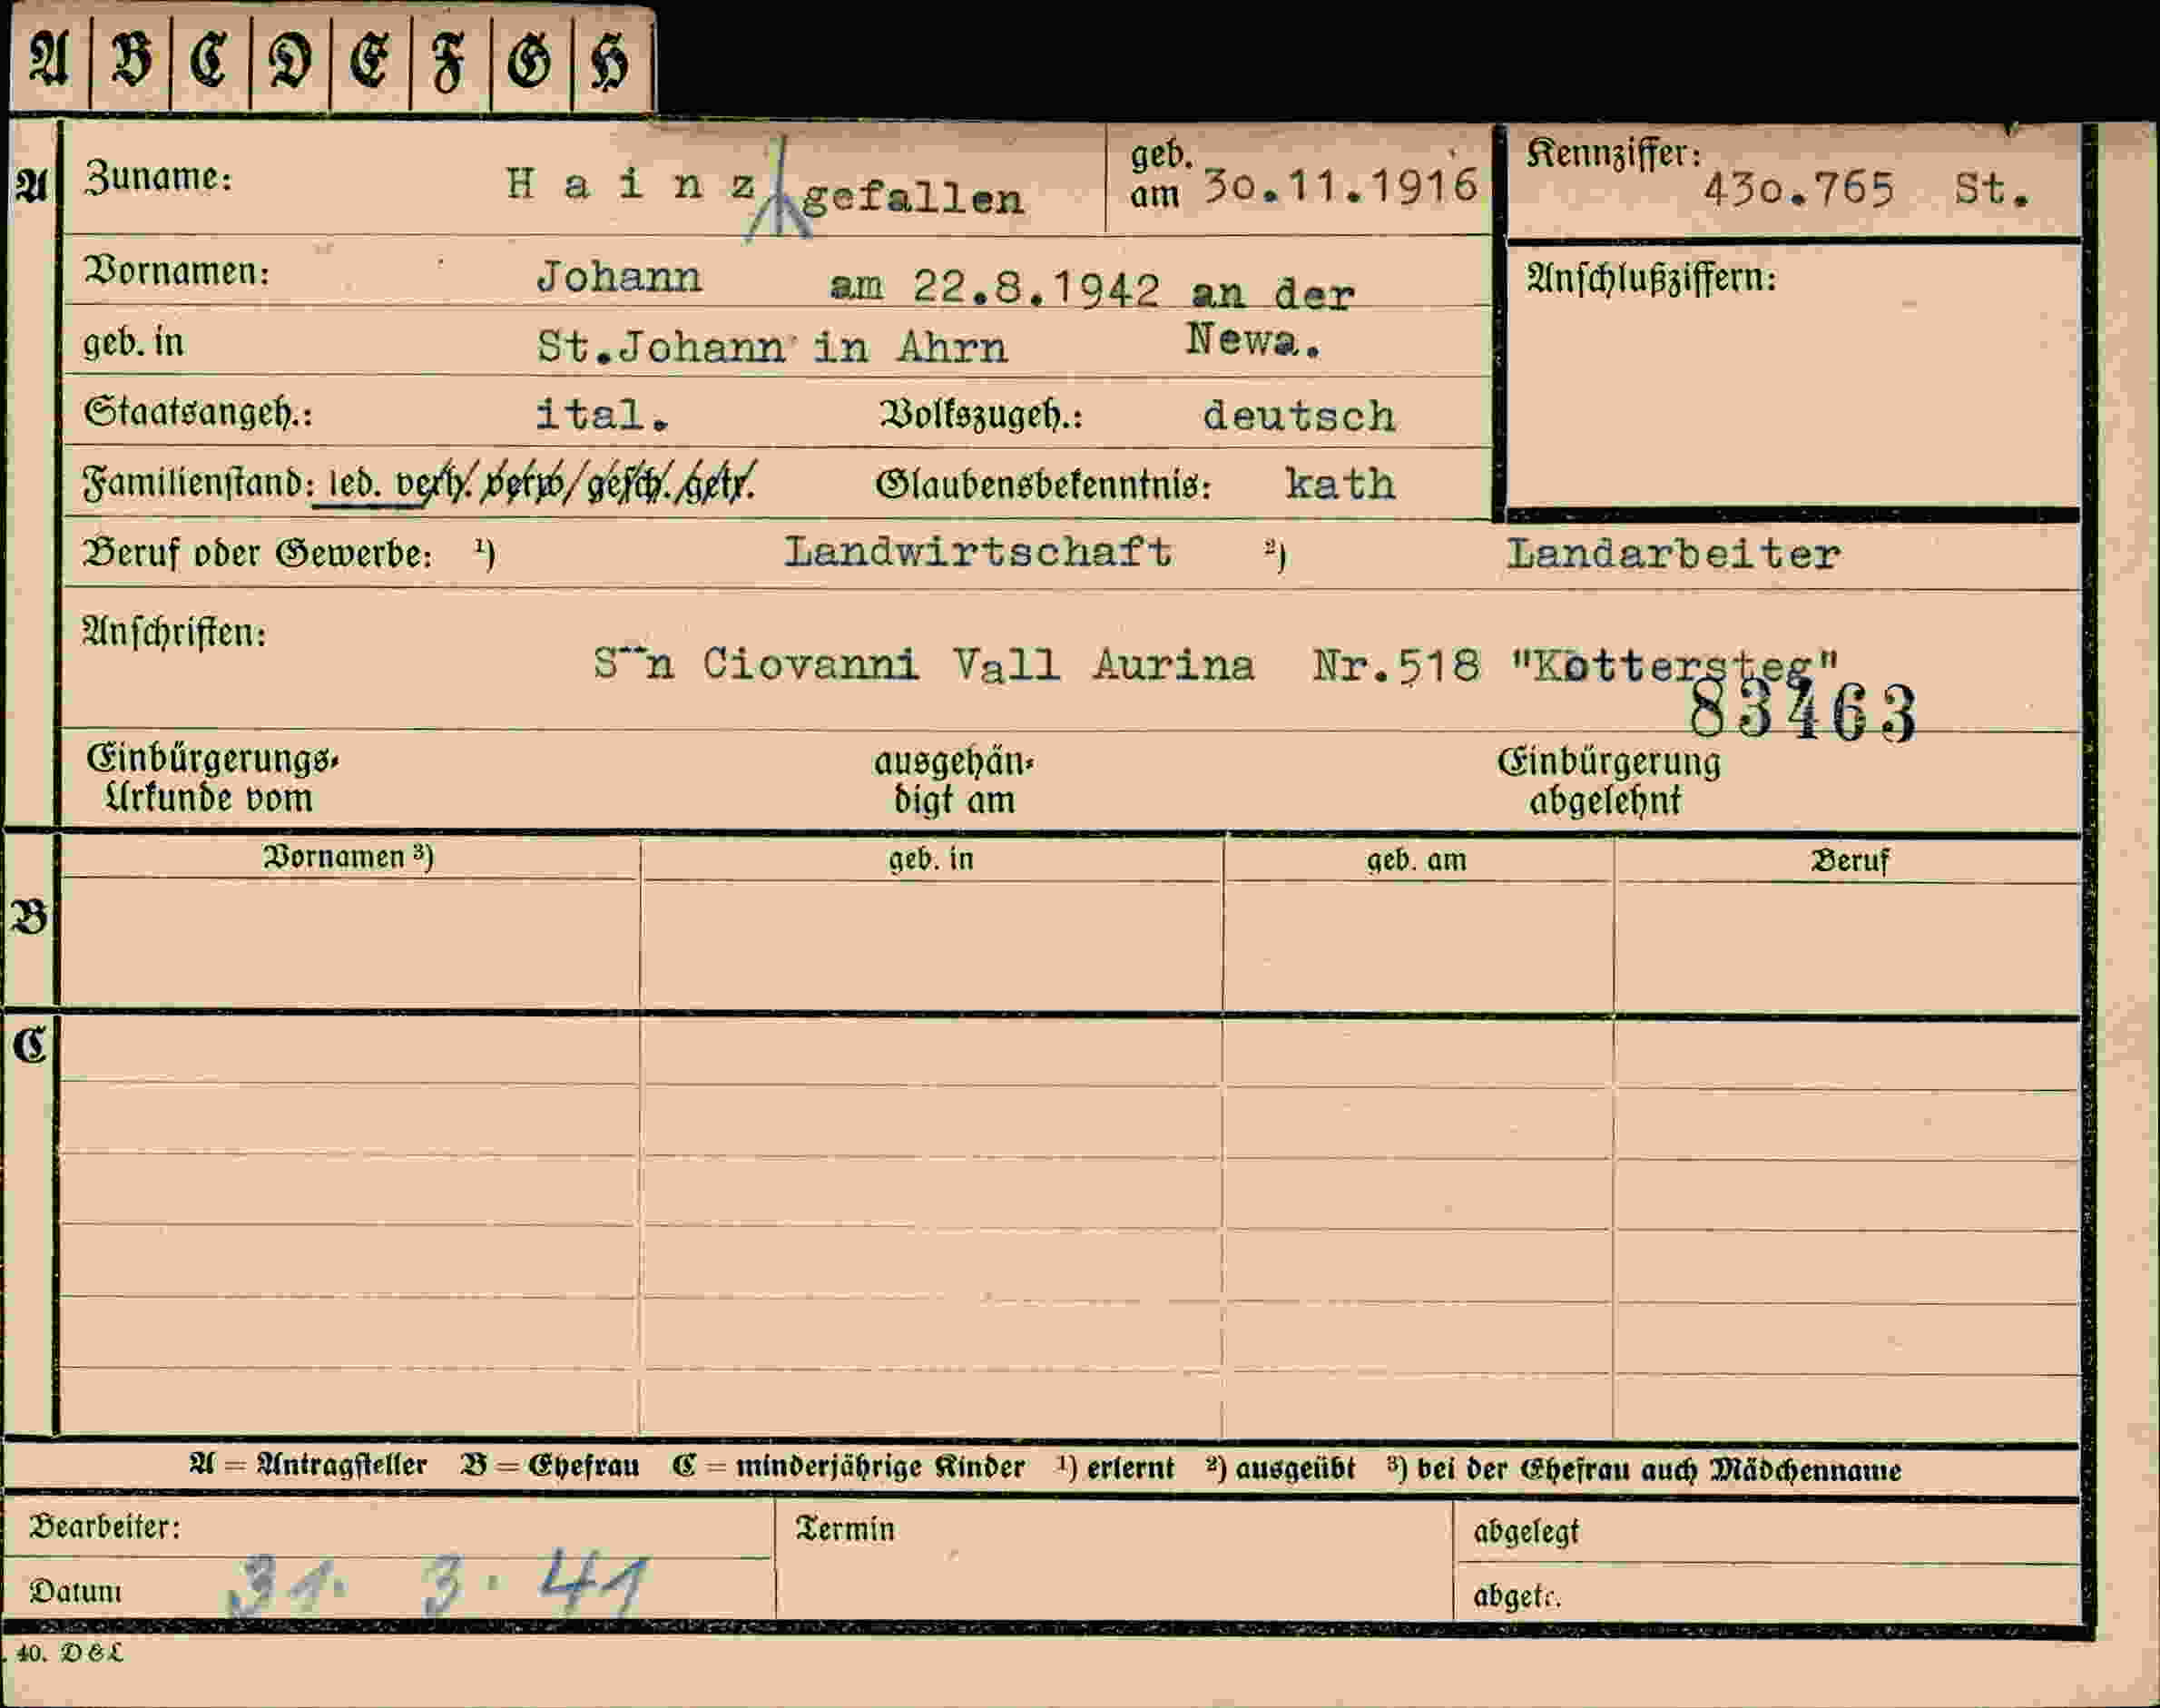 A B C D E F G H
A Zuname: Hainz gefallen geb. am 30.11.1916 Kennziffer: 430.765 St.
Vornamen: Johann am 22.8.1942 an der Anschlußziffern:
geb. in St.Johann in Ahrn Newa.
Staatsangeh.: ital. Volkszugeh.: deutsch
Familienstand: led. verh. verw. gesch. getr. Glaubensbekenntnis: kath
Beruf oder Gewerbe: ¹) Landwirtschaft ²) Landarbeiter
Anschriften:
S¨¨n Ciovanni Vall Aurina Nr.518 "Kottersteg"
83463
Einbürgerungs- ausgehän- Einbürgerung
Urkunde vom digt am abgelehnt
Vornamen ³) geb. in geb. am Beruf
B
C
A = Antragsteller B = Ehefrau C = minderjährige Kinder ¹) erlernt ²) ausgeübt ³) bei der Ehefrau auch Mädchenname
Bearbeiter: Termin abgelegt
Datum 31. 3. 41 abgetr.
40. D&L